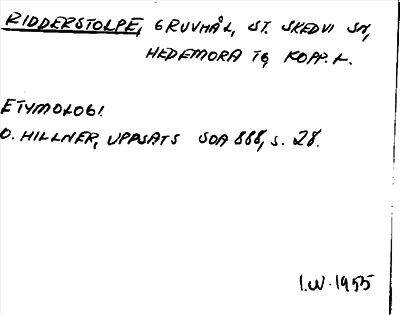 RIDDERSTOLPE, GRUVHÅL, ST. SKEDVI SN,
HEDEMORA TG KOPP. L.
ETYMOLOGI.
O. HILLNER, UPPSATS SOA 868, s. 28.
I.W. 1955